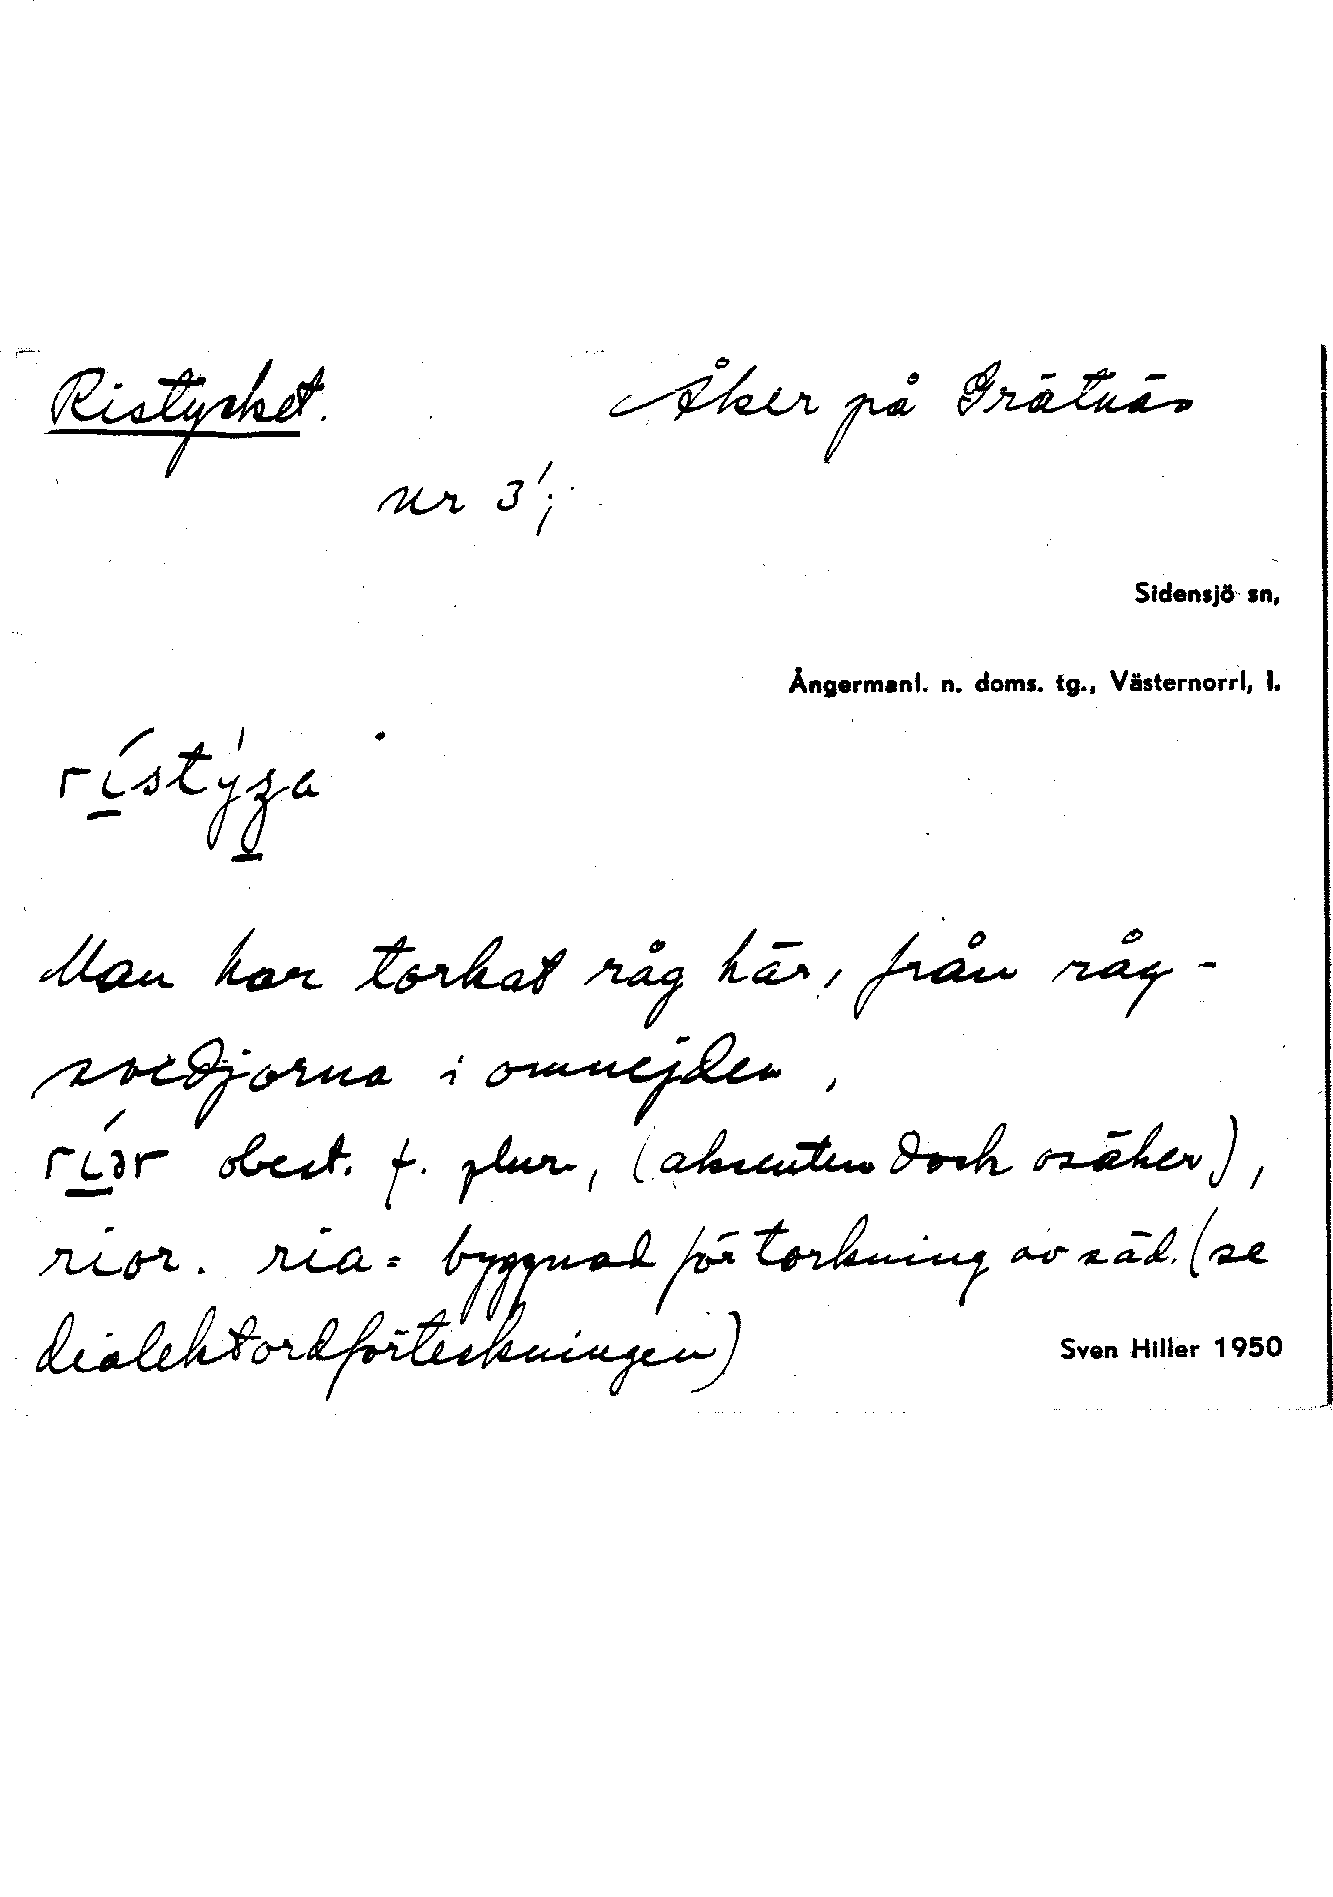 Ristycket. Åker på Grätnäs
nr 3¹;
Sidensjö sn,
Ångermanl. n. doms. tg., Västernorrl, l.
rístýʒa
Man har torkat råg här, från råg-
svedjorna i omnejden,
ríər obest. f. plur, (aksenten dock osäker),
rior. ria = byggnad för torkning av säd. (se
dialektordförteckningen)
Sven Hiller 1950